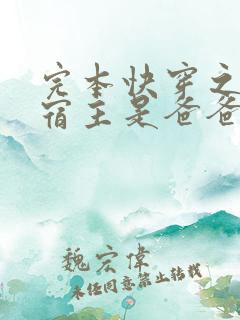 完本快穿之
宿主是爸爸
魏宏偉
未經同意禁止轉載